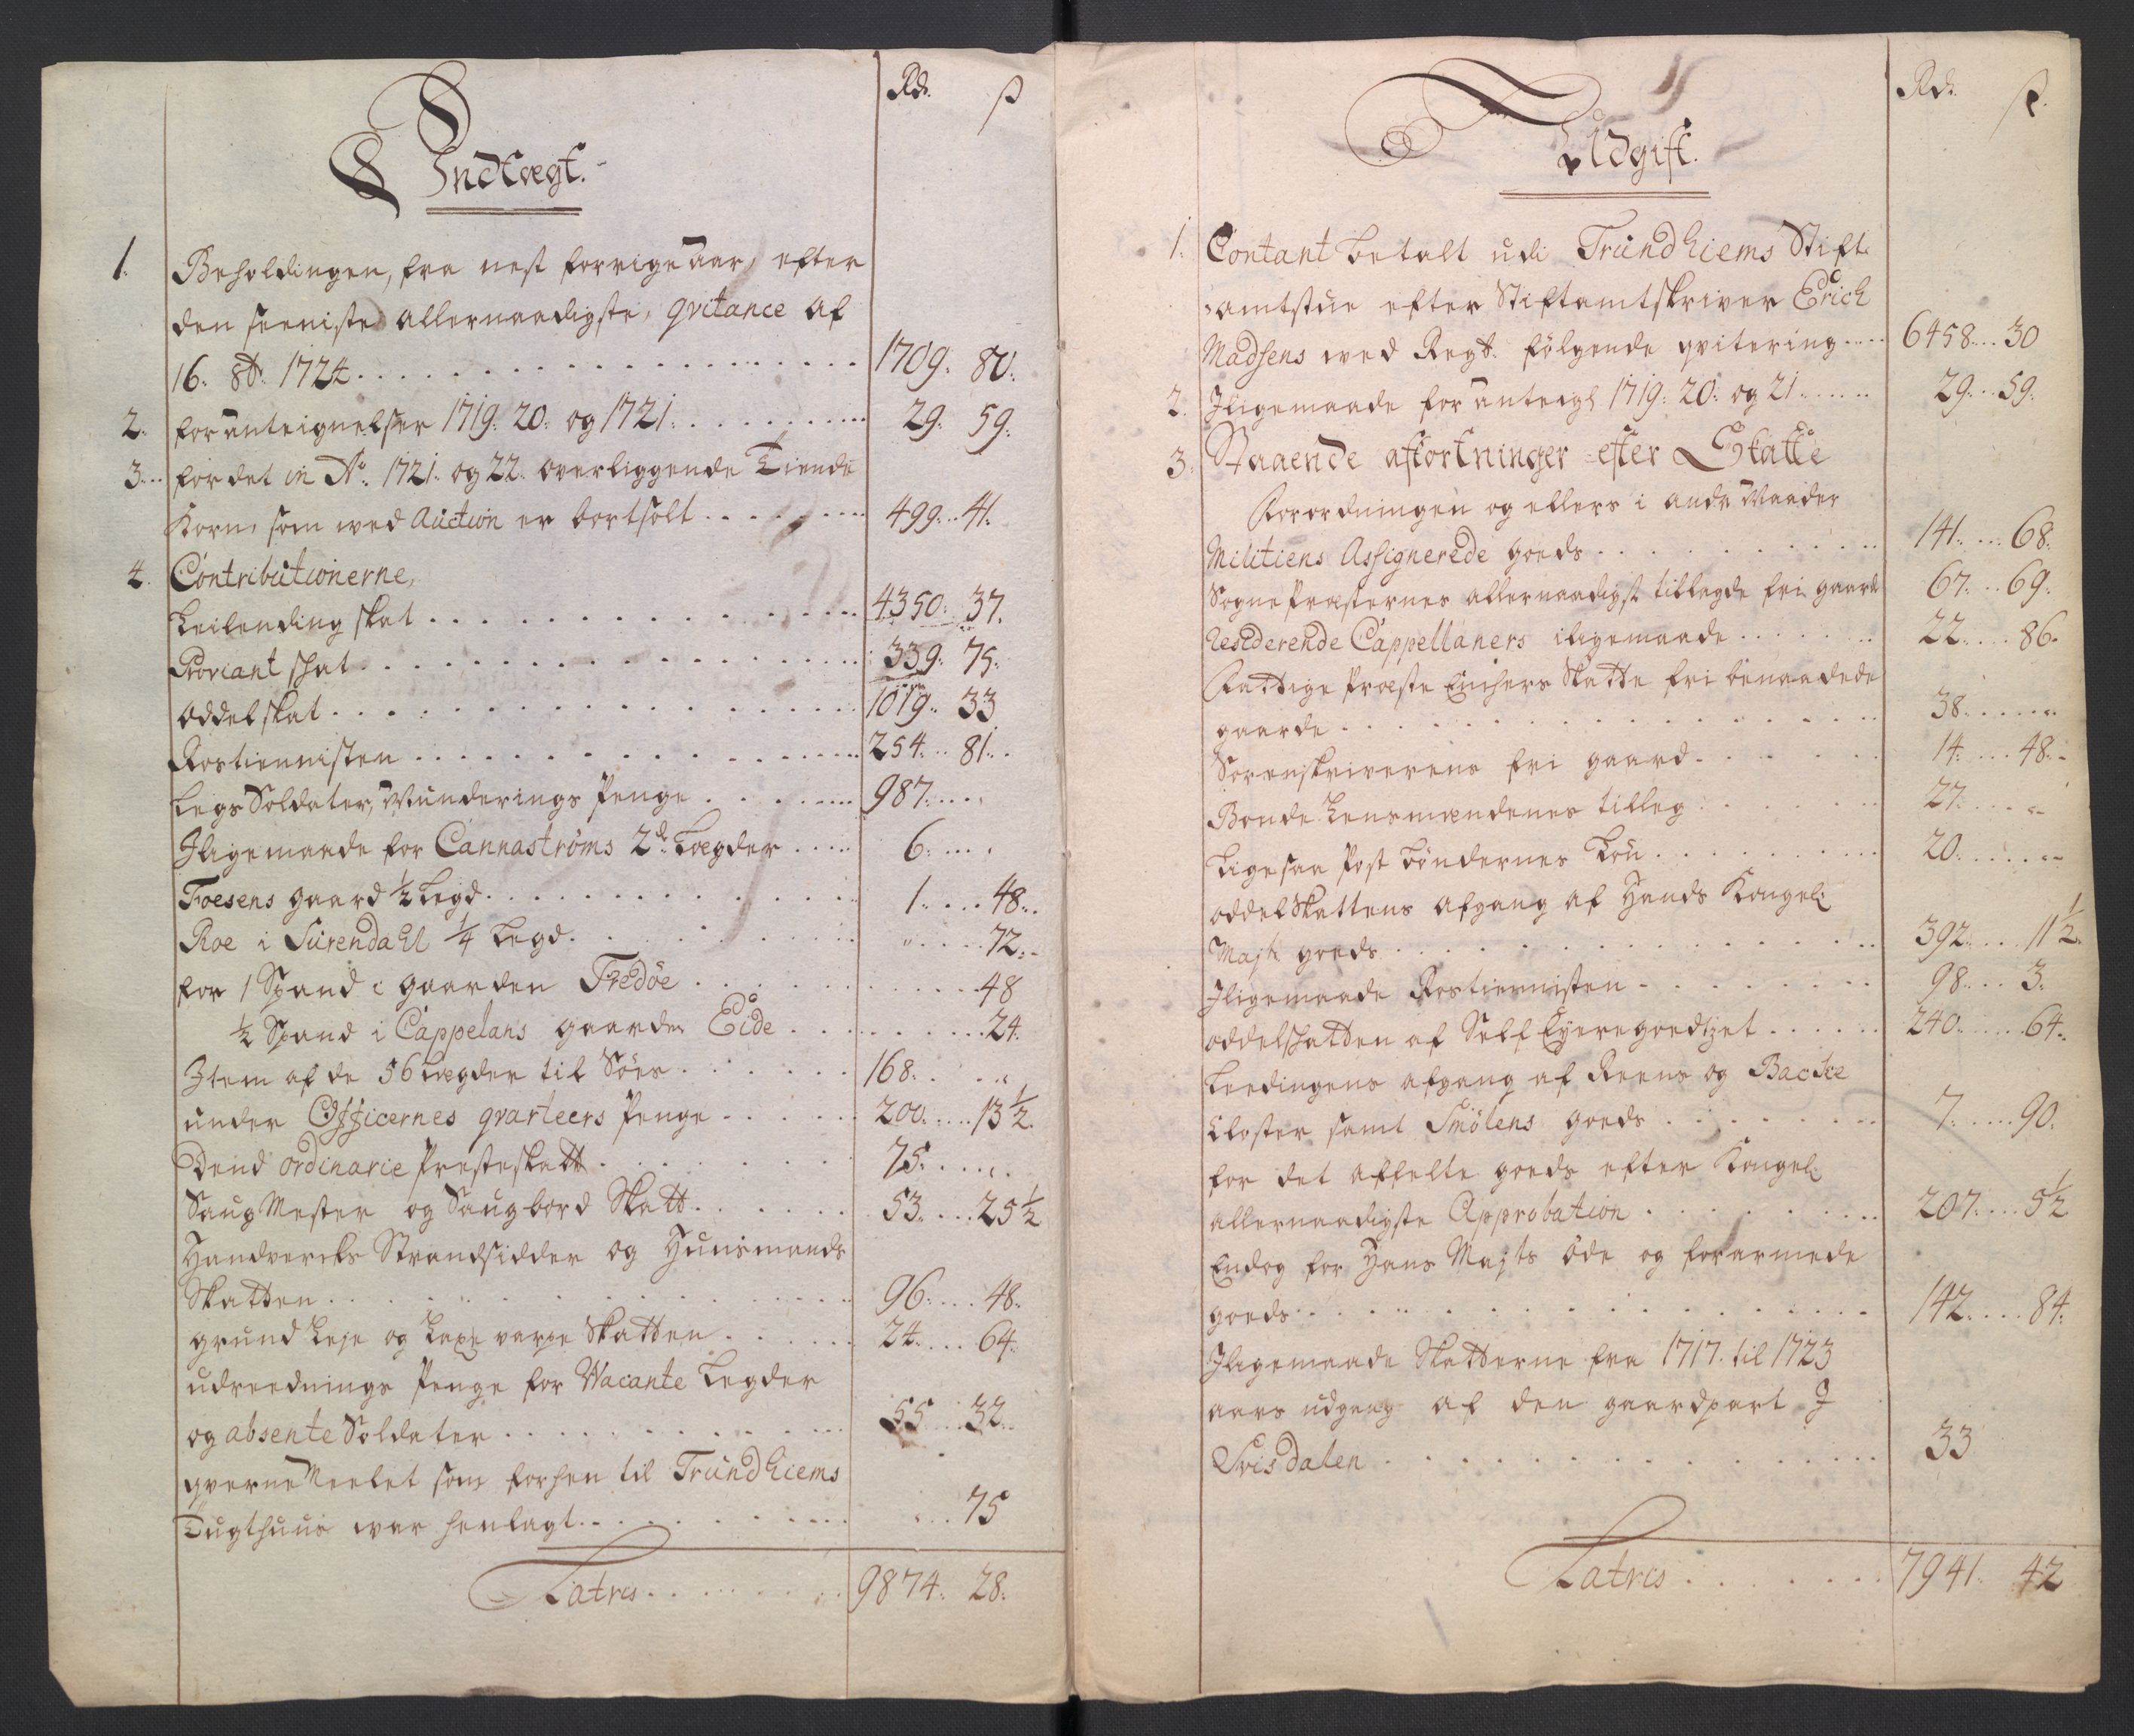 Rdr. ß
Indtægt.
1. Beholdingen, fra nest forrige aar, efter
den seeniste allernaadigste, qvitance af
16. 8br. 1724 . . . 1709. 80.
2. for anteignelser 1719. 20. og 1721. . . . 29. 59.
3. for det in Ao. 1721. og 22. overliggende Tiende
Korn, som wed Auction er bortsolt . . . 499. 41.
4. Contributionerne,
Leilending skat . . . 4350. 37.
Proviant schat . . . 339. 75.
Oddel skat . . . 1019. 33
Rostiennisten . . . 254. 81.
Legs Soldater, Munderings Penge . . . 987. . .
Iligemaade for Cannastrøms 2de Lægder . . . 6. . .
Foesens gaard ½ Legd . . . 1. 48.
Roe i Surendahl ¼ Legd . . . " 72.
for 1 Spand i gaarden Fredøe . . . 48
½ Spand i Cappelans gaarden Eide . . . 24.
Item af de 56 Lægder til Søes . . . 168. . .
under Officernes qvarteers Penge . . . 200. 13½.
Dend ordinarie Presteskatt . . . 75. . .
Saug Mester og Saugbord Skatt . . . 53. 25½
Handvercks Strandsidder og Huusmands
Skatten . . . 96. 48.
grund Leje og Laxe varpe Skatten . . . 24. 64.
udreednings Penge for Vacante Legder
og absente Soldater . . . 55 32.
qverne Meelet som forhen til Trundhiems
Tugthuus war henlagt . . . 75
Latris . . . 9874. 28.
Rdr. ß.
Udgift.
1. Contant betalt udi Trundhiems Stift
amtstue efter Stiftamtskriver Erich
Madsens wed Regt. følgende qvitering . . . 6458. 30
2. Iligemaade for anteigl 1719. 20. og 21 . . . 29. 59.
3. Staaende afkortninger efter Skatte
Forordningen og ellers i andre Maader
Militiens Assignerede goeds . . . 141. 68.
Sogne Præsternes allernaadigst tillagde fri gaarde 67. 69.
Residerende Cappellaners iligemaade . . . 22. 86.
Fattige Præste Enchers Skatte fri benaadede
gaarde . . . 38. . .
Sorenskriverens fri gaard . . . 14. 48.
Bonde Lensmændenes tilleg . . . 27. . .
Ligesaa Post bøndernes Løn . . . 20. . .
Oddel Skattens afgang af Hands Kongel:
Majts goeds . . . 392. 11½.
Iligemaade Rostiennisten . . . 98. 3.
Oddelschatten af Self Eyeregoedtzet . . . 240. 64.
Leedingens afgang af Reens og Backe
Closter samt Smølens goeds . . . 7. 90.
for det affelte goeds efter Kongel:
allernaadigste Approbation . . . 207. 5½
Endog for Hans Majts øde og forarmede
goeds . . . 142. 84.
Iligemaade Skatterne fra 1717. til 1723
aars udgang af den gaardpart I
Svisdalen . . . 33
Latris . . . 7941. 42